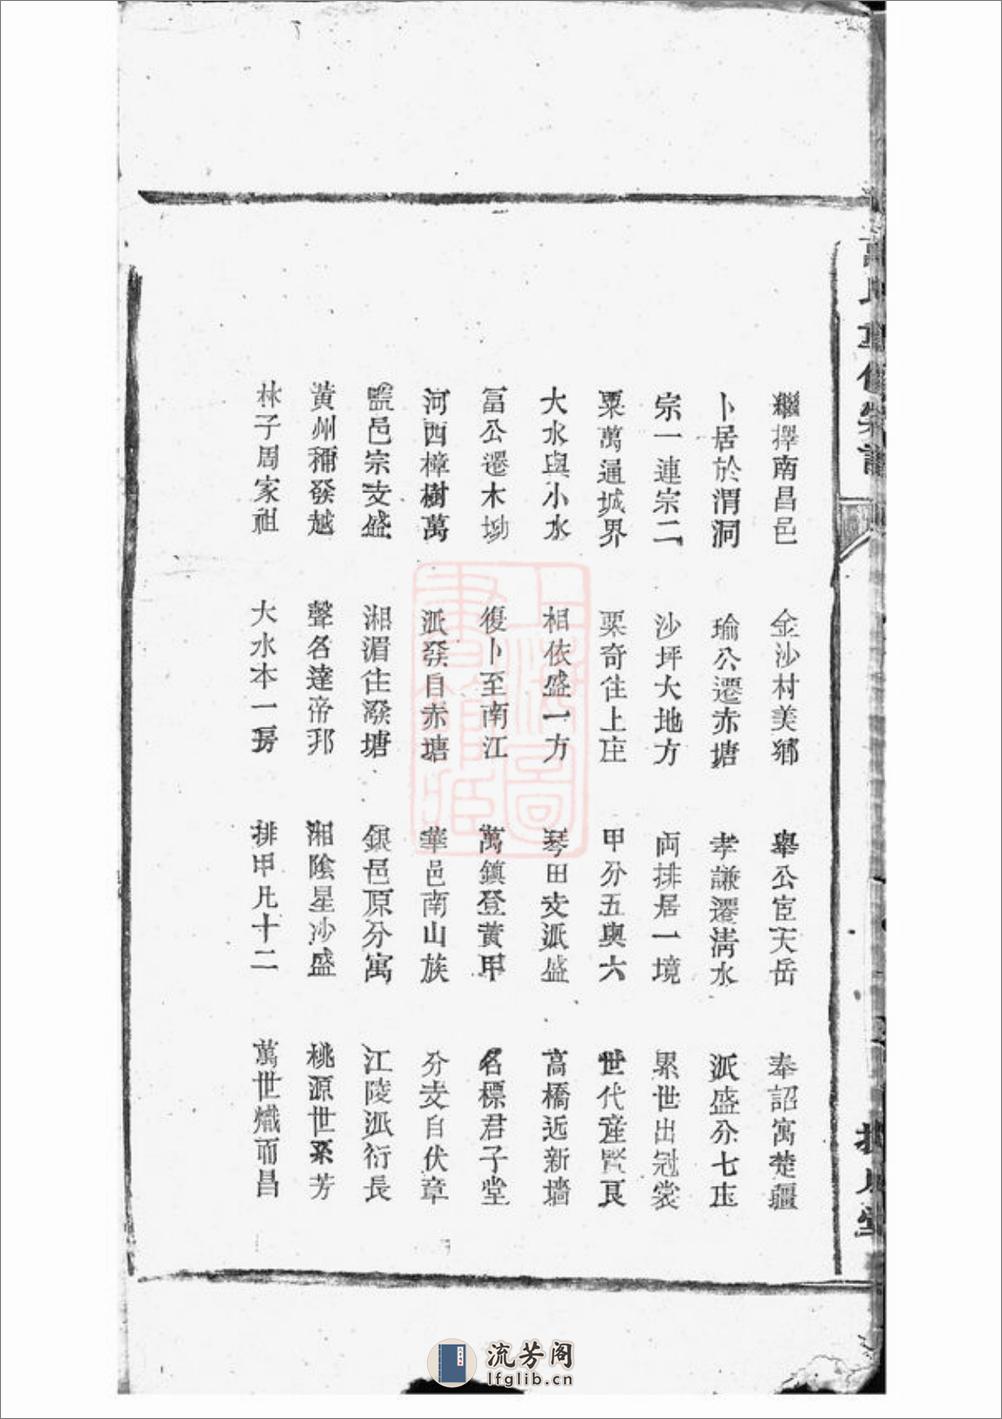 繼擇南昌邑 金沙村美鄉 舉公宦天岳 奉詔寓楚疆
卜居於渭洞 瑜公遷赤塘 孝謙遷清水 派盛分七庄
宗一連宗二 沙坪大地方 兩排居一境 累世出冠裳
粟萬通城界 粟奇徃上庄 甲分五與六 世代產賢良
大水與小水 相依盛一方 琴田支派盛 高橋近新墻
冨公遷木坳 復卜至南江 萬鎮登黃甲 名標君子堂
河西樟樹萬 派發自赤塘 華邑南山族 分支自伏章
監邑宗支盛 湘湄徃潑塘 銀邑原分寓 江陵派衍長
黃州稱發越 聲名達帝邦 湘陰星沙盛 桃源世系芳
林子周家祖 大水本一房 排甲凡十二 萬世熾而昌
上海圖書館藏
流芳阁
lfglib.cn